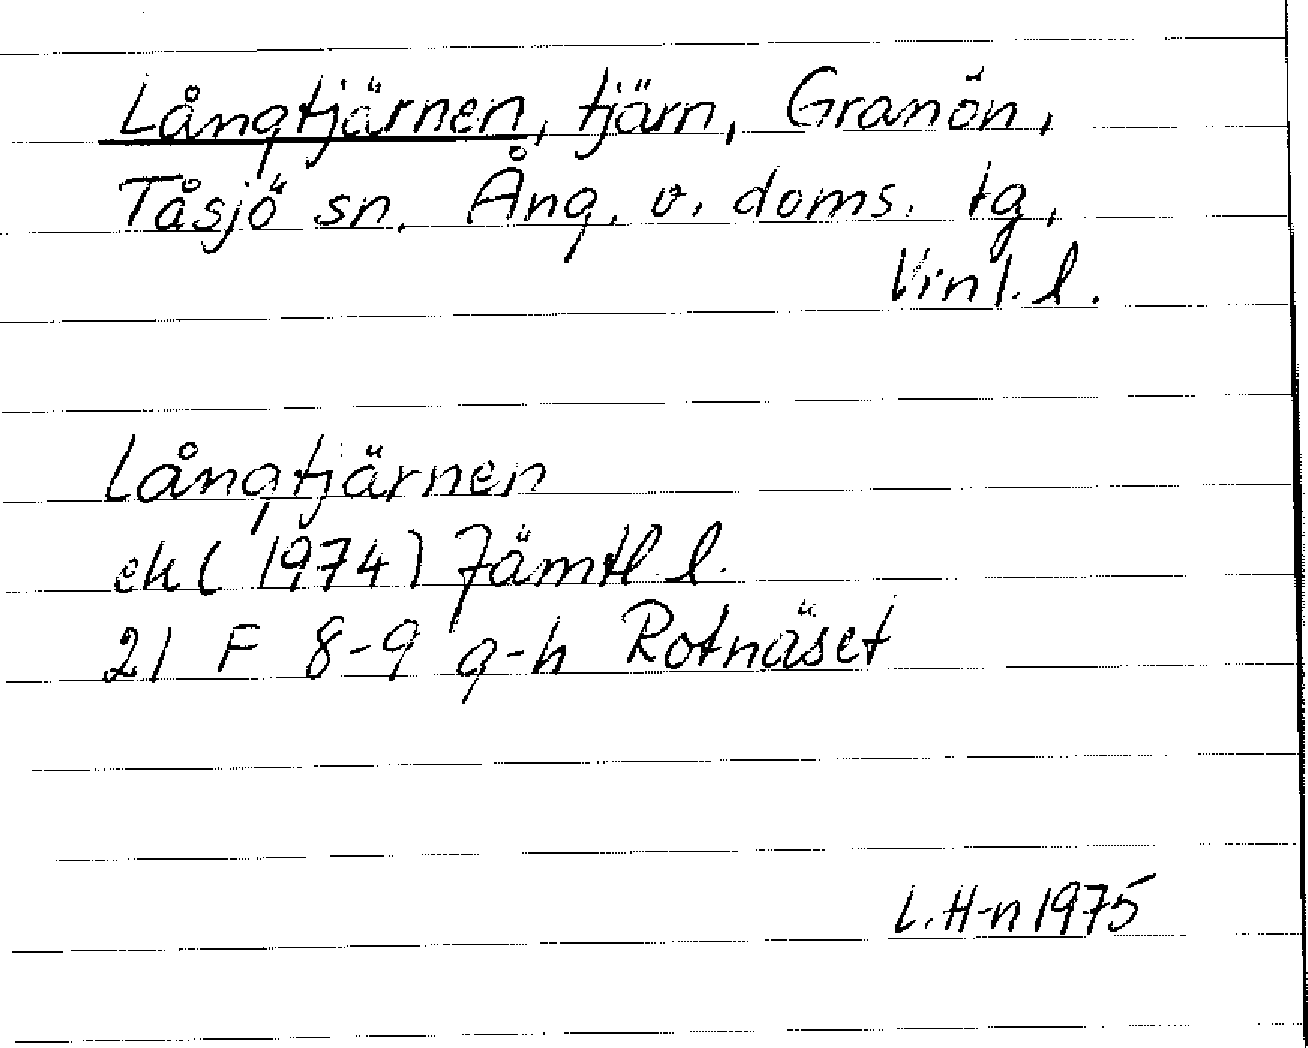 Långtjärnen, tjärn, Granön,
Tåsjö sn. Ång. v. doms. tg,
Vnl. l.
Långtjärnen
ek (1974) Jämtl l.
21 F 8-9 g-h Rotnäset
L. H-n 1975